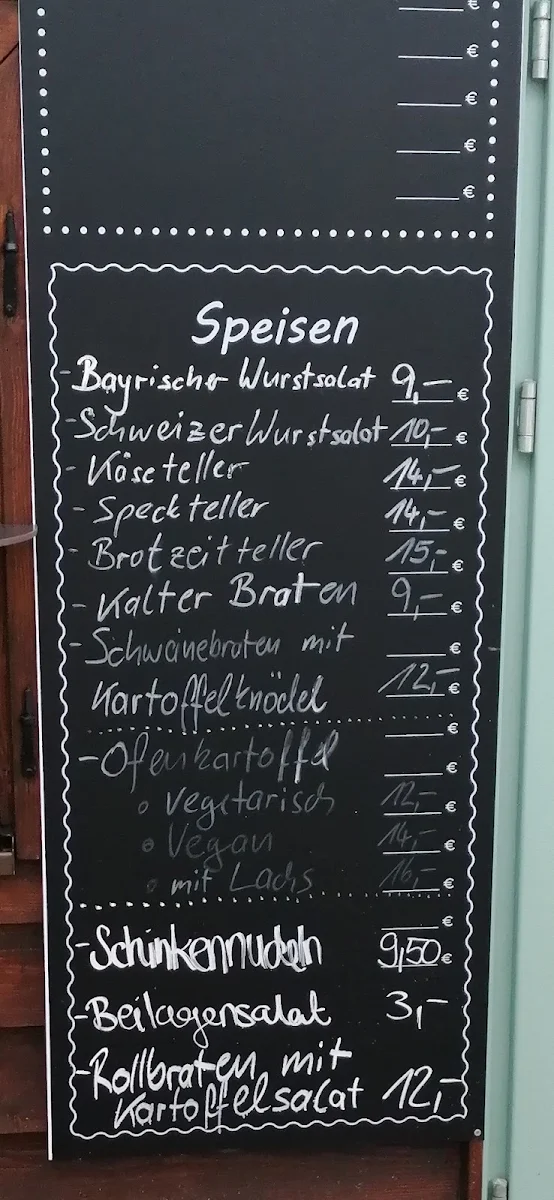 €
€
€
€
€
Speisen
- Bayrischer Wurstsalat 9,- €
- Schweizer Wurstsalat 10,- €
- Käseteller 14,- €
- Speckteller 14,- €
- Brotzeitteller 15,- €
- Kalter Braten 9,- €
- Schweinebraten mit €
Kartoffelknödel 12,- €
€
- Ofenkartoffel €
o Vegetarisch 12,- €
o Vegan 14,- €
o mit Lachs 16,- €
€
- Schinkennudeln 9,50 €
- Beilagensalat 3,-
- Rollbraten mit
Kartoffelsalat 12,-